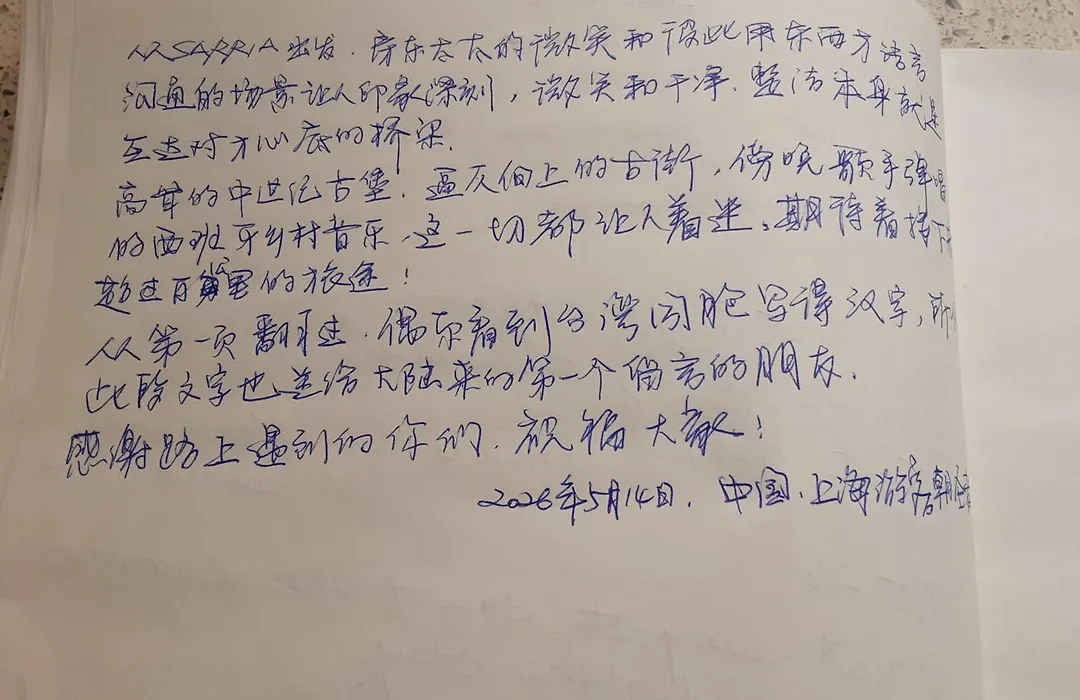 从SARRIA出发.房东太太的微笑和彼此用东西方语言
沟通的场景让人印象深刻,微笑和干净.整洁本身就是
至达对方心底的桥梁.
高耸的中世纪古堡.逼仄的上的古街,傍晚歌手弹唱
的西班牙乡村音乐.这一切都让人着迷。期待着接下来
超过百公里的旅途!
从第一页翻过.偶尔看到台湾同胞写得汉字,所以
此段文字也送给大陆来的第一个留言的朋友.
感谢路上遇到的你们.祝福大家!
2026年5月14日.中国.上海游客朝圣者